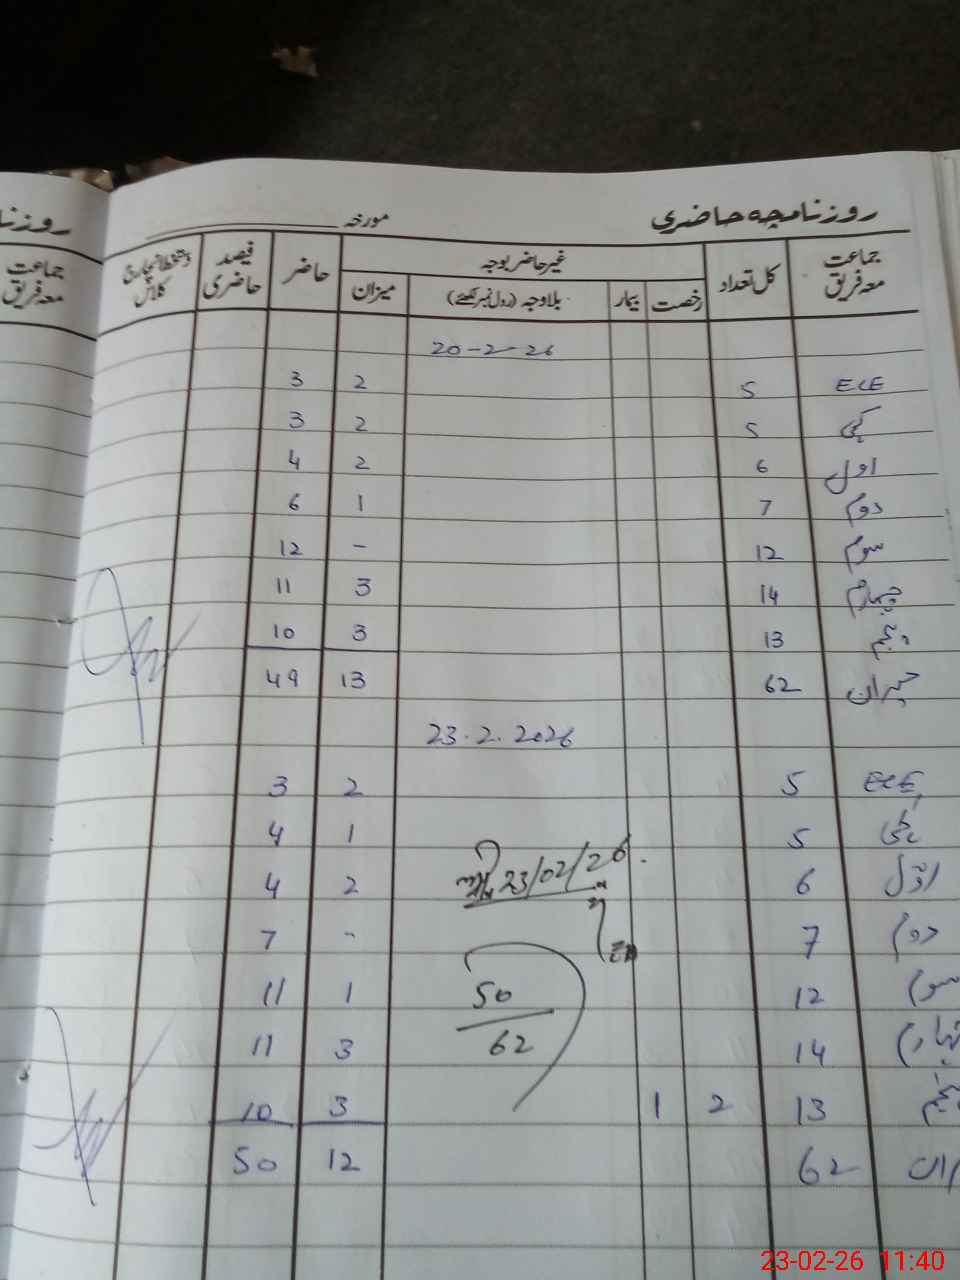 روزنامچہ حاضری مورخہ
جماعت معہ فریق کل تعداد غیر حاضر بوجہ حاضر فیصد حاضری دستخط انچارج کلاس
رخصت بیمار بلاوجہ (رول نمبر لکھئے) میزان
20-2-26
ECE 5 2 3
کچی 5 2 3
اول 6 2 4
دوم 7 1 6
سوم 12 - 12
چہارم 14 3 11
پنجم 13 3 10
میزان 62 13 49
23.2.2026
ECE 5 2 3
کچی 5 1 4
اول 6 2 4
23/02/26
دوم 7 - 7
سوم 12 1 11
50
62
چہارم 14 3 11
پنجم 13 2 1 3 10
62 12 50
روزنا
جماعت معہ فریق
23-02-26 11:40